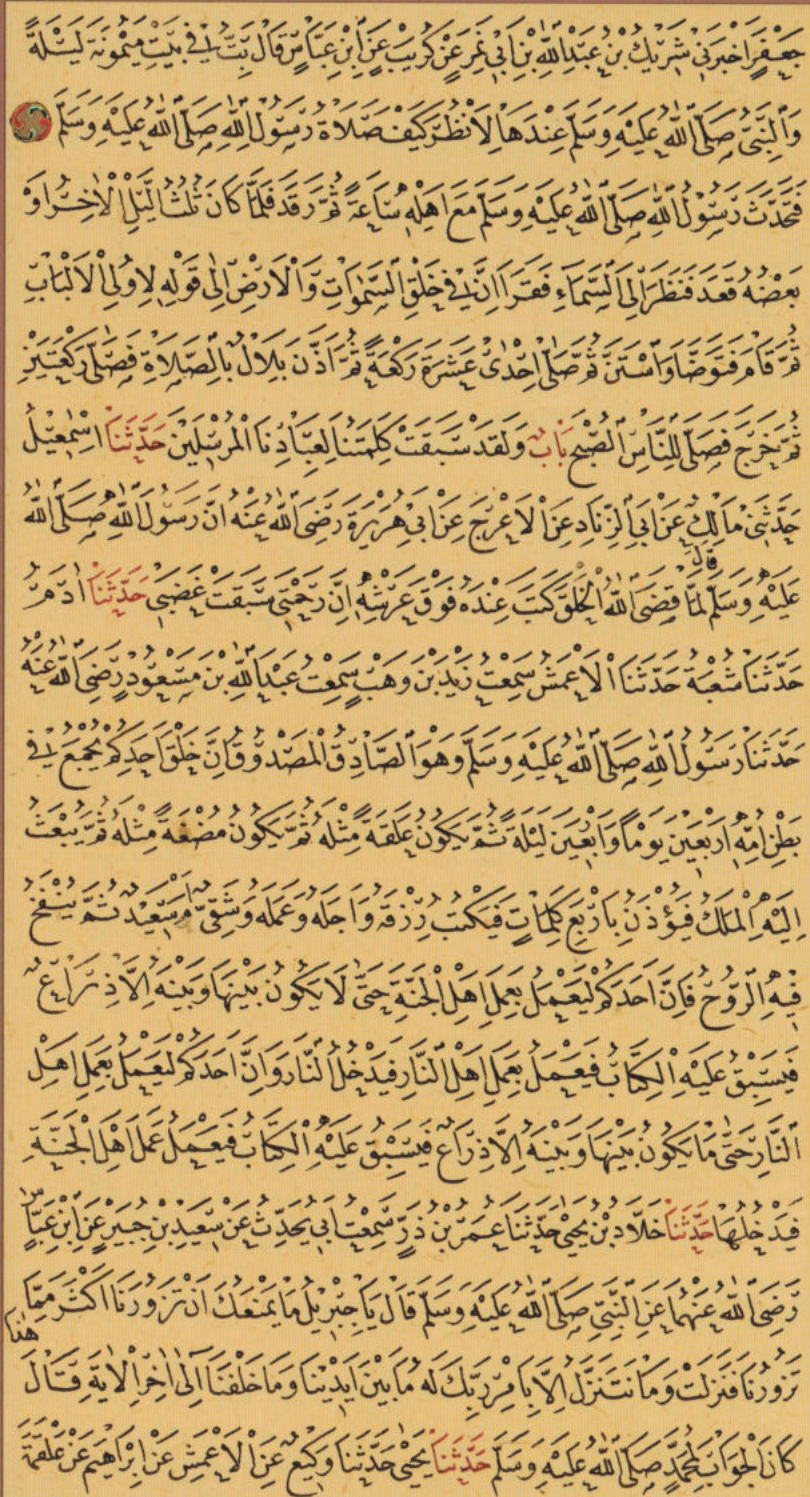 جَعْفَرٍ اَخْبَرَنِي شَرِيكُ بْنُ عَبْدِ اللّٰهِ بْنِ اَبِي نَمِرٍ عَنْ كُرَيْبٍ عَنِ ابْنِ عَبَّاسٍ قَالَ بِتُّ فِي بَيْتِ مَيْمُونَةَ لَيْلَةً
وَالنَّبِيُّ صَلَّى اللّٰهُ عَلَيْهِ وَسَلَّمَ عِنْدَهَا لِاَنْظُرَ كَيْفَ صَلَاةُ رَسُولِ اللّٰهِ صَلَّى اللّٰهُ عَلَيْهِ وَسَلَّمَ
فَتَحَدَّثَ رَسُولُ اللّٰهِ صَلَّى اللّٰهُ عَلَيْهِ وَسَلَّمَ مَعَ اَهْلِهِ سَاعَةً ثُمَّ رَقَدَ فَلَمَّا كَانَ ثُلُثُ اللَّيْلِ الْاٰخِرُ اَوْ
بَعْضُهُ قَعَدَ فَنَظَرَ اِلَى السَّمَاءِ فَقَرَاَ اِنَّ فِي خَلْقِ السَّمٰوَاتِ وَالْاَرْضِ اِلَى قَوْلِهِ لِاُولِي الْاَلْبَابِ
ثُمَّ قَامَ فَتَوَضَّاَ وَاسْتَنَّ ثُمَّ صَلَّى اِحْدٰى عَشْرَةَ رَكْعَةً ثُمَّ اَذَّنَ بِلَالٌ بِالصَّلَاةِ فَصَلَّى رَكْعَتَيْنِ
ثُمَّ خَرَجَ فَصَلَّى لِلنَّاسِ الصُّبْحَ بَابٌ وَلَقَدْ سَبَقَتْ كَلِمَتُنَا لِعِبَادِنَا الْمُرْسَلِينَ حَدَّثَنَا اِسْمٰعِيلُ
حَدَّثَنِي مَالِكٌ عَنْ اَبِي الزِّنَادِ عَنِ الْاَعْرَجِ عَنْ اَبِي هُرَيْرَةَ رَضِيَ اللّٰهُ عَنْهُ اَنَّ رَسُولَ اللّٰهِ صَلَّى اللّٰهُ
عَلَيْهِ وَسَلَّمَ قَالَ لَمَّا قَضَى اللّٰهُ الْخَلْقَ كَتَبَ عِنْدَهُ فَوْقَ عَرْشِهِ اِنَّ رَحْمَتِي سَبَقَتْ غَضَبِي حَدَّثَنَا اٰدَمُ
حَدَّثَنَا شُعْبَةُ حَدَّثَنَا الْاَعْمَشُ سَمِعْتُ زَيْدَ بْنَ وَهْبٍ سَمِعْتُ عَبْدَ اللّٰهِ بْنَ مَسْعُودٍ رَضِيَ اللّٰهُ عَنْهُ
حَدَّثَنَا رَسُولُ اللّٰهِ صَلَّى اللّٰهُ عَلَيْهِ وَسَلَّمَ وَهُوَ الصَّادِقُ الْمَصْدُوقُ اِنَّ خَلْقَ اَحَدِكُمْ يُجْمَعُ فِي
بَطْنِ اُمِّهِ اَرْبَعِينَ يَوْمًا وَاَرْبَعِينَ لَيْلَةً ثُمَّ يَكُونُ عَلَقَةً مِثْلَهُ ثُمَّ يَكُونُ مُضْغَةً مِثْلَهُ ثُمَّ يُبْعَثُ
اِلَيْهِ الْمَلَكُ فَيُؤْذَنُ بِاَرْبَعِ كَلِمَاتٍ فَيَكْتُبُ رِزْقَهُ وَاَجَلَهُ وَعَمَلَهُ وَشَقِيٌّ اَمْ سَعِيدٌ ثُمَّ يَنْفُخُ
فِيهِ الرُّوحُ فَاِنَّ اَحَدَكُمْ لَيَعْمَلُ بِعَمَلِ اَهْلِ الْجَنَّةِ حَتَّى لَا يَكُونُ بَيْنَهَا وَبَيْنَهُ اِلَّا ذِرَاعٌ
فَيَسْبِقُ عَلَيْهِ الْكِتَابُ فَيَعْمَلُ بِعَمَلِ اَهْلِ النَّارِ فَيَدْخُلُ النَّارَ وَاِنَّ اَحَدَكُمْ لَيَعْمَلُ بِعَمَلِ اَهْلِ
النَّارِ حَتَّى مَا يَكُونُ بَيْنَهَا وَبَيْنَهُ اِلَّا ذِرَاعٌ فَيَسْبِقُ عَلَيْهِ الْكِتَابُ فَيَعْمَلُ عَمَلَ اَهْلِ الْجَنَّةِ
فَيَدْخُلُهَا حَدَّثَنَا خَلَّادُ بْنُ يَحْيٰى حَدَّثَنَا عُمَرُ بْنُ ذَرٍّ سَمِعْتُ اَبِي يُحَدِّثُ عَنْ سَعِيدِ بْنِ جُبَيْرٍ عَنِ ابْنِ عَبَّاسٍ
رَضِيَ اللّٰهُ عَنْهُمَا عَنِ النَّبِيِّ صَلَّى اللّٰهُ عَلَيْهِ وَسَلَّمَ قَالَ يَا جِبْرِيلُ مَا يَمْنَعُكَ اَنْ تَزُورَنَا اَكْثَرَ مِمَّا
تَزُورُنَا فَنَزَلَتْ وَمَا نَتَنَزَّلُ اِلَّا بِاَمْرِ رَبِّكَ لَهُ مَا بَيْنَ اَيْدِينَا وَمَا خَلْفَنَا اِلٰى اٰخِرِ الْاٰيَةِ قَالَ هٰذَا
كَانَ الْجَوَابَ لِمُحَمَّدٍ صَلَّى اللّٰهُ عَلَيْهِ وَسَلَّمَ حَدَّثَنَا يَحْيٰى حَدَّثَنَا وَكِيعٌ عَنِ الْاَعْمَشِ عَنْ اِبْرَاهِيمَ عَنْ عَلْقَمَةَ